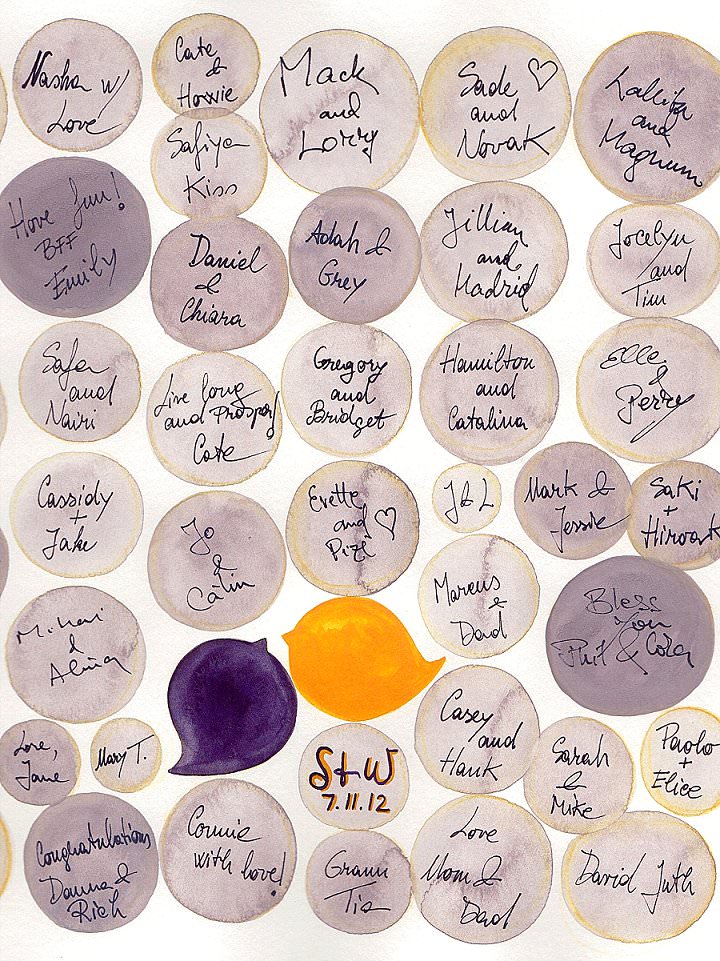 Nasha w/
Love
Cate
&
Howie
Mack
and
Lorry
Sade ♡
and
Novak
Lallita
and
Magnum
Safiya
Kiss
Have fun!
BFF
Emily
Daniel
&
Chiara
Adah &
Grey
Jillian
and
Madrid
Jocelyn
and
Tim
Safa
and
Nairi
Live long
and Prosper!
Cate
Gregory
and
Bridget
Hamilton
and
Catalina
Elle
&
Perry
Cassidy
+
Jake
Jo
&
Călin
Evette
and ♡
Pizi
J & L
Mark &
Jessie
Saki
+
Marcus
&
Dad
Bless
you
Phil & Cora
Mihai
&
Alina
Love,
Jane
Mary T.
S+W
7.11.12
Casey
and
Hank
Sarah
&
Mike
Paolo
+
Elice
Congratulations
Danna &
Rich
Connie
with love!
Gramm
Tia
Love
Mom &
Dad
David Juth